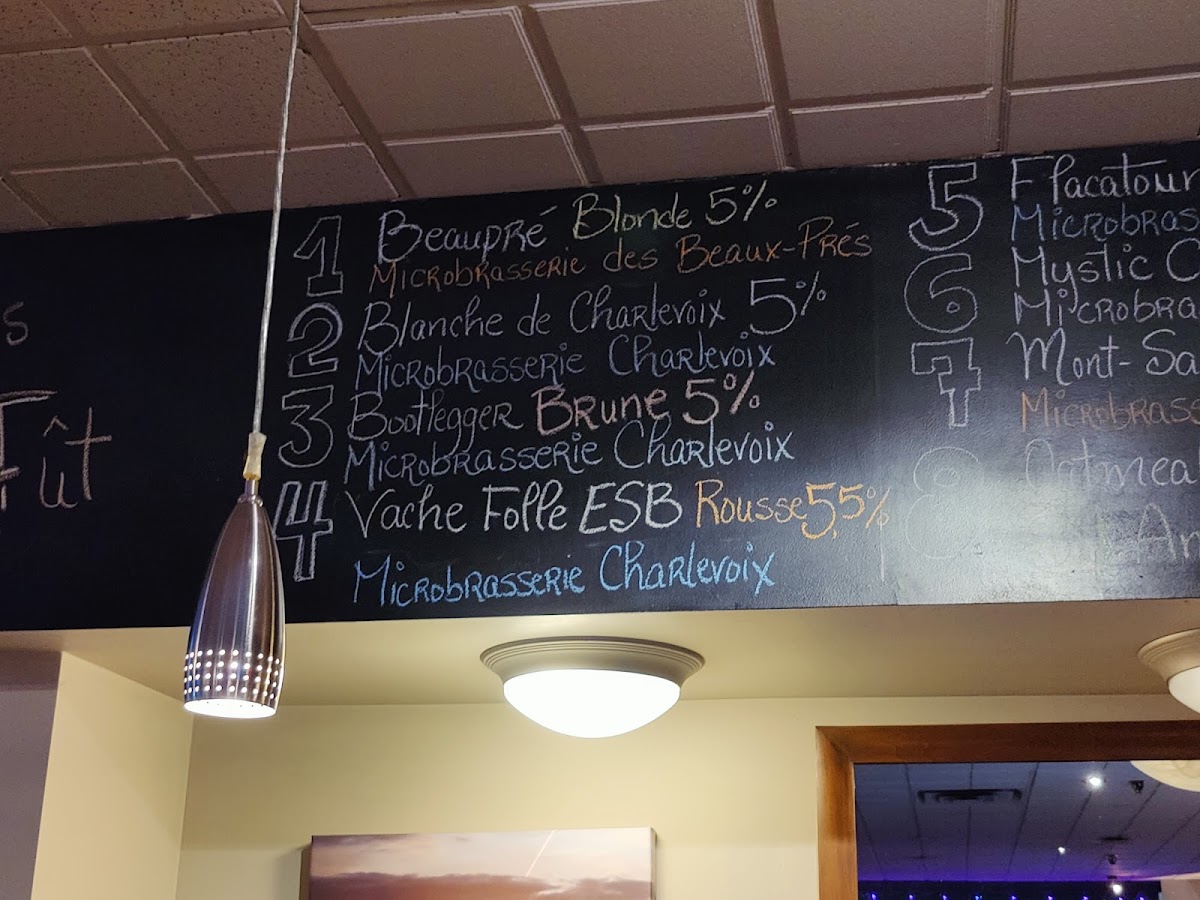 s
Fût
1 Beaupré Blonde 5%
Microbrasserie des Beaux-Prés
2 Blanche de Charlevoix 5%
Microbrasserie Charlevoix
3 Bootlegger Brune 5%
Microbrasserie Charlevoix
4 Vache Folle ESB Rousse 5,5%
Microbrasserie Charlevoix
5 Flacatour
Microbrass
6 Mystic C
Microbra
7 Mont-Sa
Microbrass
8 Oatmeal